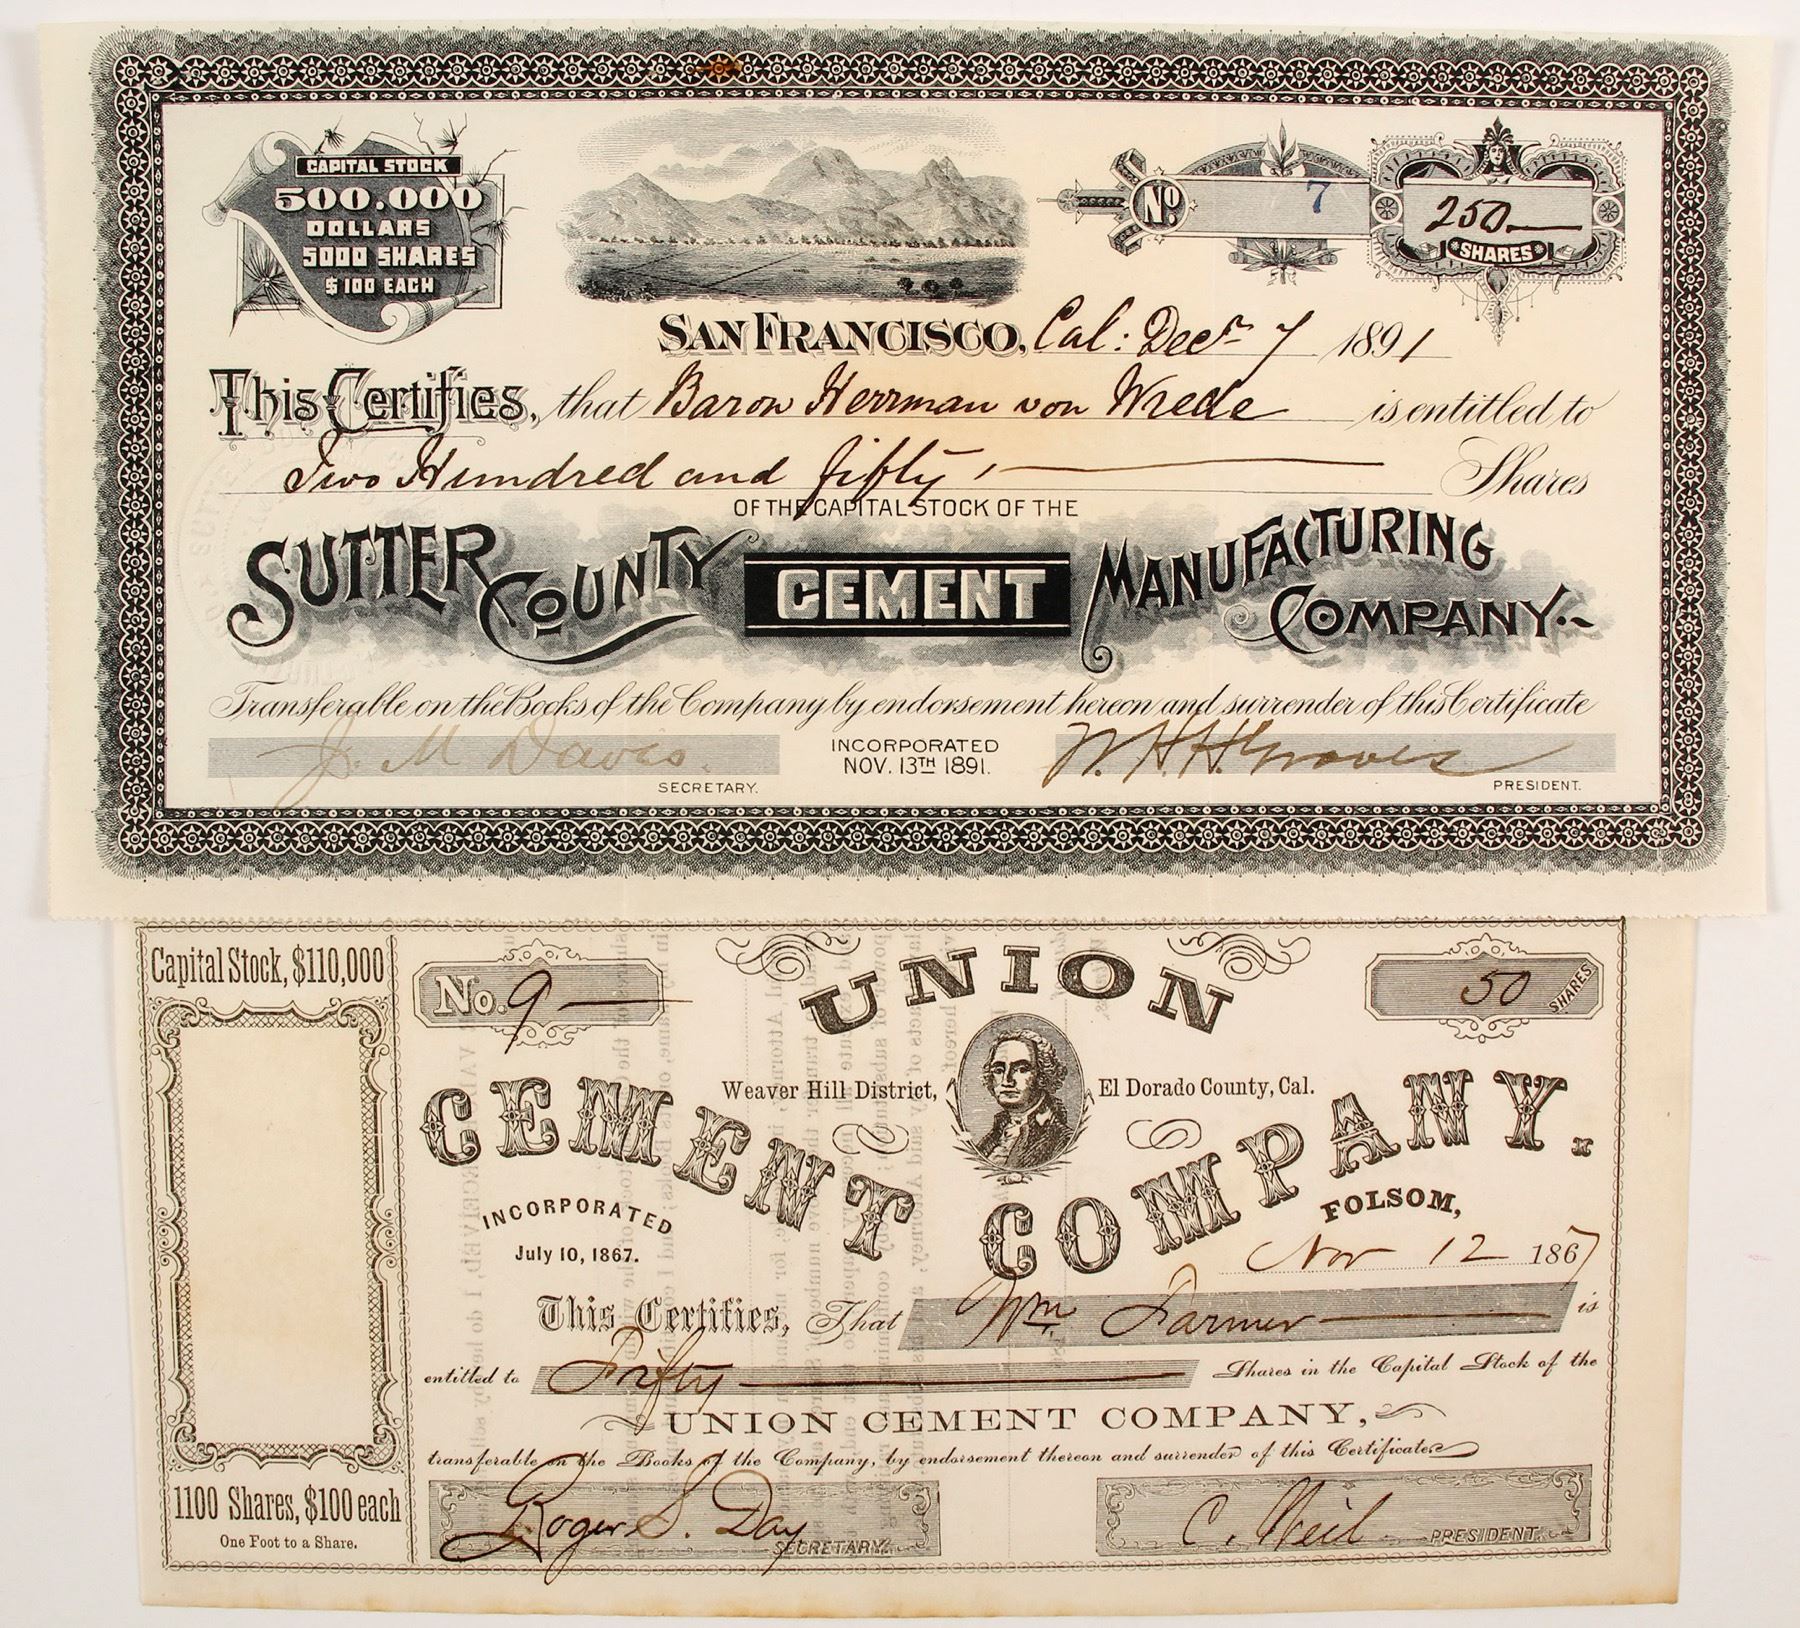 CAPITAL STOCK
500.000
DOLLARS
5000 SHARES
$100 EACH
No. 7
250
SHARES
SAN FRANCISCO, Cal: Decr 7 1891
This Certifies, that Baron Herrman von Wrede is entitled to
Two Hundred and fifty, Shares
OF THE CAPITAL STOCK OF THE
SUTTER COUNTY CEMENT MANUFACTURING COMPANY.
Transferable on the Books of the Company by endorsement hereon and surrender of this Certificate
J. M Davis.
SECRETARY.
INCORPORATED
NOV. 13TH 1891.
W. H. H. Graves
PRESIDENT.
Capital Stock, $110,000
No. 9
UNION
50 SHARES
Weaver Hill District, El Dorado County, Cal.
CEMENT COMPANY.
INCORPORATED
July 10, 1867.
FOLSOM,
Nov 12 1867
This Certifies, That Wm Farmer is
entitled to Fifty Shares in the Capital Stock of the
UNION CEMENT COMPANY,
transferable on the Books of the Company, by endorsement thereon and surrender of this Certificate
1100 Shares, $100 each
One Foot to a Share.
Roger S. Day
SECRETARY.
C. Neil
PRESIDENT.